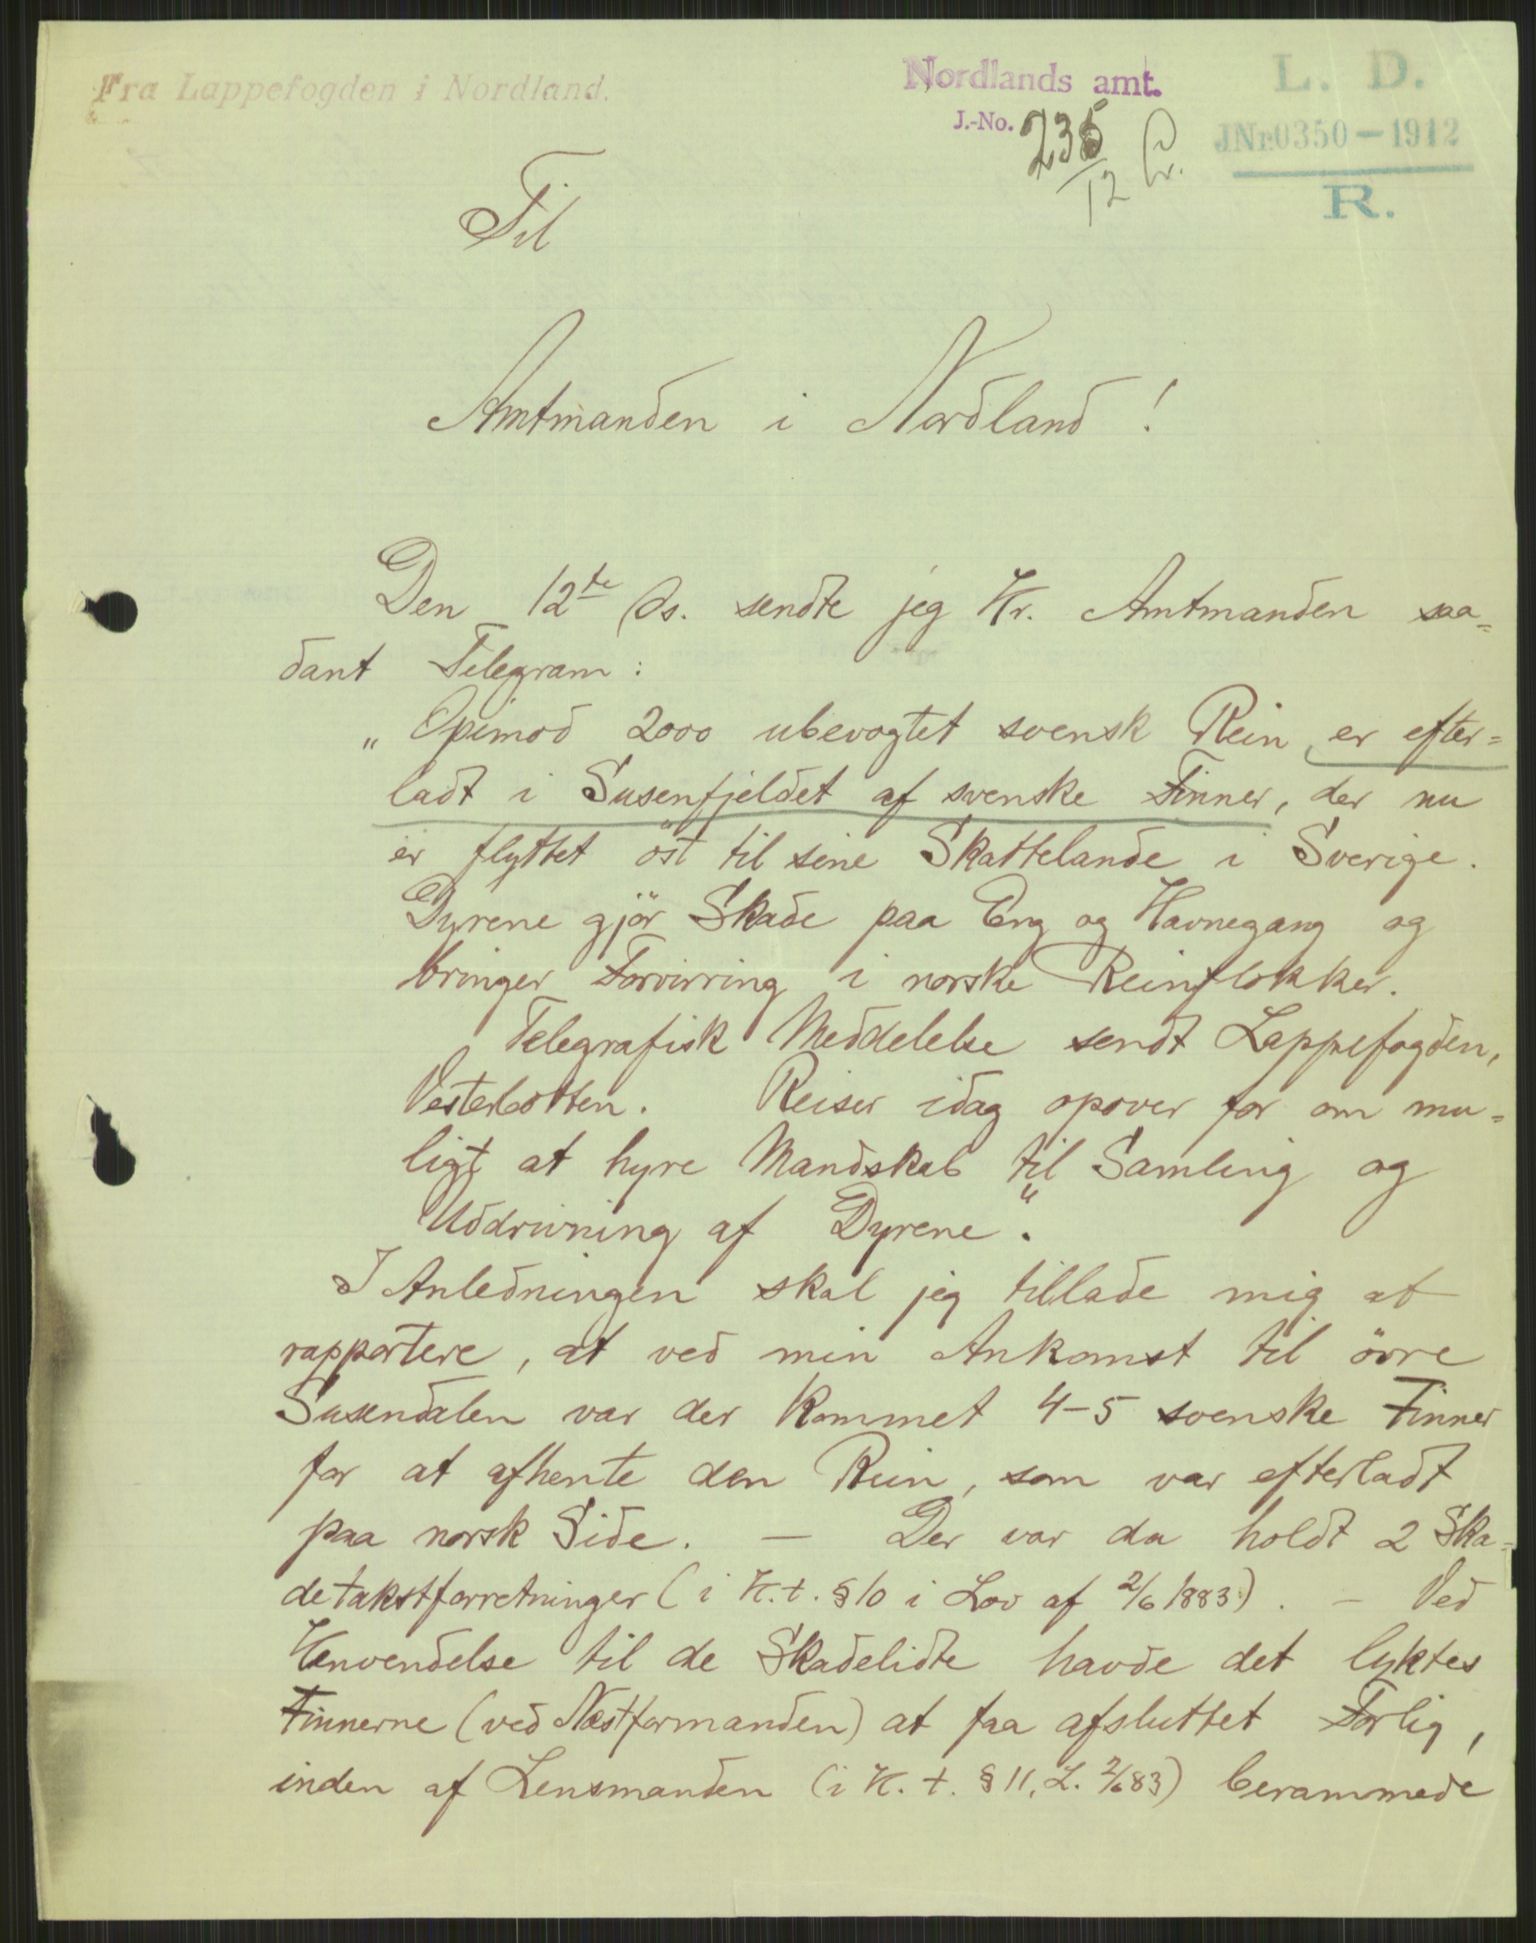 Fra Lappefogden i Nordland.
Nordlands amt.
J.-No. 235
12
L. D.
JNr. 0350 - 1912
R.
Til
Amtmanden i Nordland!
Den 12te ds. sendte jeg Hr. Amtmanden saa=
dant Telegram:
„Opimod 2000 ubevogtet svensk Rein er efter=
ladt i Susenfjeldet af svenske Finner, der nu
er flyttet öst til sine Skattelande i Sverige.
Dyrene gjör Skade paa Eng og Havnegang og
bringer Forvirring i norske Reinflokker.
Telegrafisk Meddelelse sendt Lappefogden,
Vesterbotten. Reiser idag opover for om mu=
ligt at hyre Mandskab til Samling og
Uddrivning af Dyrene“.
I Anledningen skal jeg tillade mig at
rapportere, at ved min Ankomst til övre
Susendalen var der kommet 4-5 svenske Finner
for at afhente den Rein, som var efterladt
paa norsk Side. — Der var da holdt 2 Ska=
detakstforretninger (i H. t. § 10 i Lov af 2/6 1883). — Ved
Henvendelse til de Skadelidte havde det lyktes
Finnerne (ved Næstformanden) at faa afsluttet Forlig,
inden af Lensmanden (i H. t. § 11, L. 2/6 83) berammede